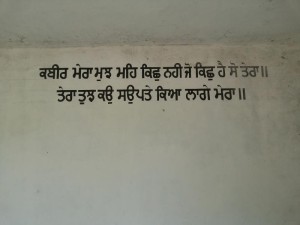 ਕਬੀਰ ਮੇਰਾ ਮੁਝ ਮਹਿ ਕਿਛੁ ਨਹੀ ਜੋ ਕਿਛੁ ਹੈ ਸੋ ਤੇਰਾ॥
ਤੇਰਾ ਤੁਝ ਕਉ ਸਉਪਤੇ ਕਿਆ ਲਾਗੇ ਮੇਰਾ॥